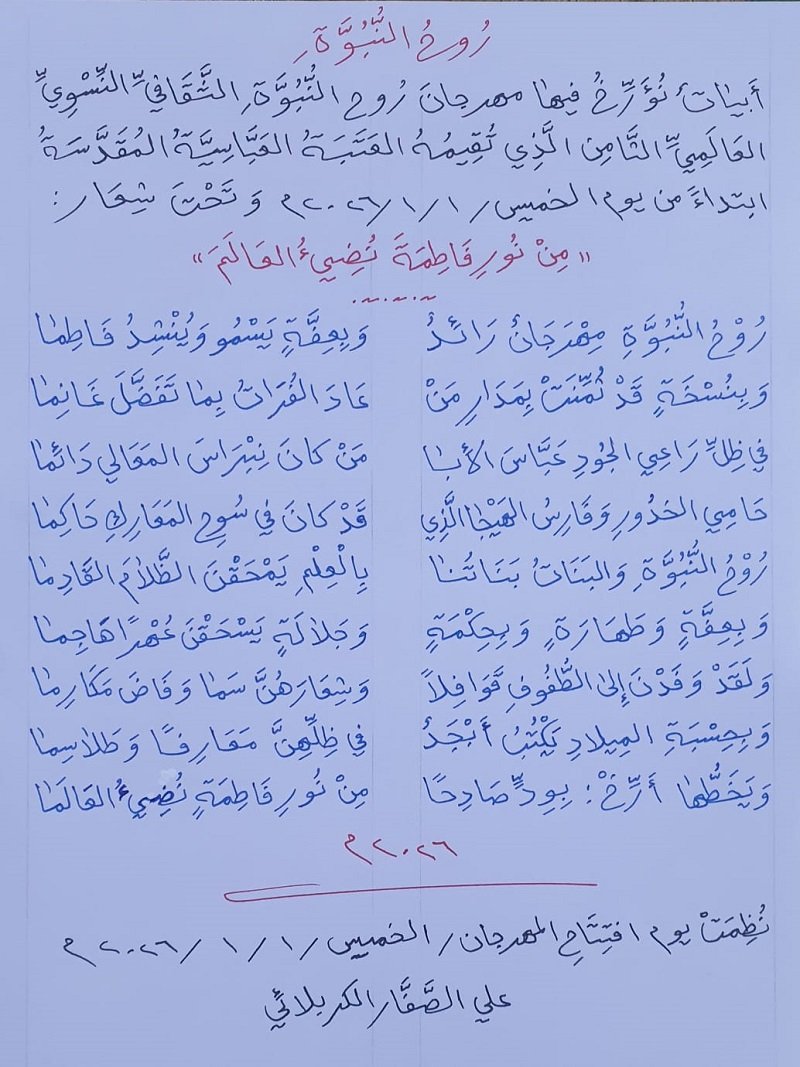 رُوحُ النُّبُوَّةِ
أَبياتٌ نُؤَرِّخُ فيها مهرجانَ رُوح النُّبُوَّةِ الثَّقَافيِّ النِّسْوِيِّ
العَالَمِيِّ الثَّامِن الَّذِي تُقِيمُهُ العَتَبَةُ العَبَّاسِيَّةُ المُقَدَّسَةُ
ابتداءً من يوم الخميس/ ٢٠٢٦/١/١م وَتَحْتَ شِعَار:
«مِنْ نُورِ فَاطِمَةَ نُضِيءُ العَالَمَ»
رُوْحُ النُّبُوَّةِ مِهْرَجَانٌ رَائدُ وَبِعِفَّةٍ يَسْمُو وَيُنْشِدُ فَاطِمَا
وَبِنُسْخَةٍ قَدْ ثُمِّنَتْ بِمَدَارِ مَنْ عَادَ الفُرَاتُ بِمَا تَفَضَّلَ غَانِمَا
في ظِلِّ رَاعِي الجُودِ عَبَّاسَ الأبا مَنْ كانَ نِبْرَاسَ المَعَالي دَائمَا
حَامِي الخدُورِ وَفَارِسُ الهَيْجَا الَّذِي قَدْ كانَ في سُوحِ المَعَارِكِ حَاكِمَا
رُوْحُ النُّبُوَّةِ وَالبَنَاتُ بَنَاتُنَا بِالْعِلْمِ يَمْحَقْنَ الظَّلامَ القَادِمَا
وَبِعِفَّةٍ وَطَهَارَةٍ وَبِحِكْمَةٍ وَجَلالَةٍ يَسْحَقْنَ عُهْرًا هَاجِمَا
وَلَقَدْ وَفَدْنَ إِلىٰ الطُّفُوفِ قَوَافِلاً وَشِعَارَهُنَّ سَمَا وَفَاضَ مَكَارِمَا
وَبِحِسْبَةِ المِيلادِ يَكْتُبُ أَبْجَدٌ في ظِلِّهِنَّ مَعَارِفًا وَطَلاسِمَا
وَيَخَطُّهَا أَرِّخْ: بِوِدٍّ صَادِحًا مِنْ نُورِ فَاطِمَةٍ نُضِيءُ العَالَمَا
٢٠٢٦م
نُظِمَتْ يوم افتِتَاحِ المهرجان/ الخميس/ ١/ ١/ ٢٠٢٦م
علي الصَّفَّار الكربلائي